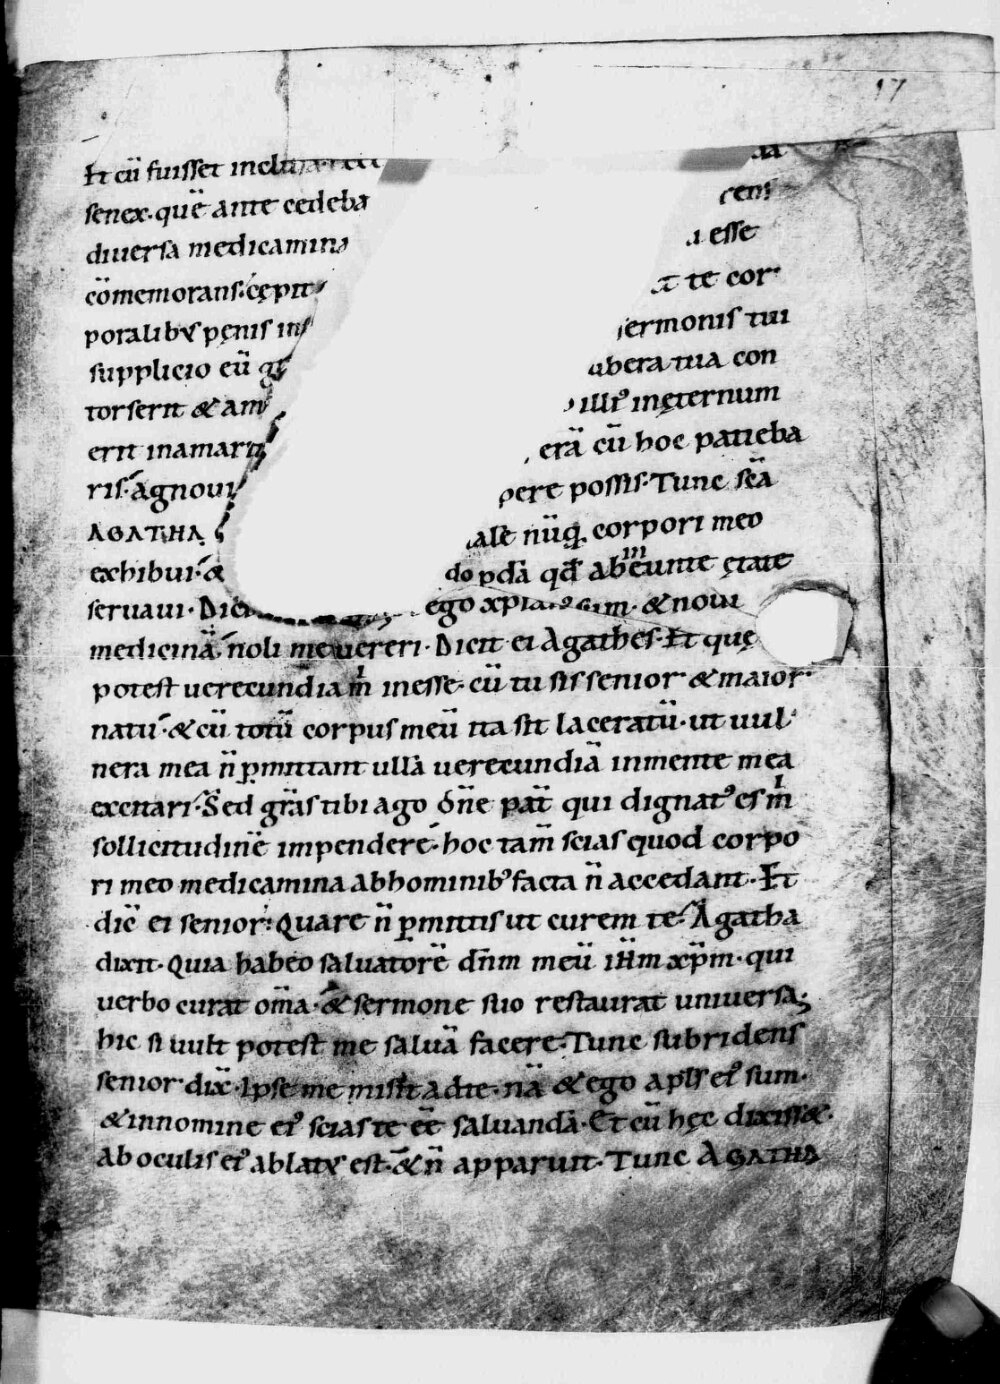 17
Et cū fuisset inclusa
senex· quē ante cedeba cens
diuersa medicamina esse
cōmemorans· cępit te cor
poralibꝰ pęnis ins sermonis tui
supplicio eū ubera tua con
torserit & am illiꝰ inęternum
erit inamarit erā cū hoc patieba
ris· agnoui pere possis· Tunc scā
AGATHA ale nūq̄ corpori meo
exhibui· & do p̄dā qđ abeunte ętate
seruaui· Dicit ego xp̄ianꝰ sum· & noui
medicinā· noli me uereri· Dicit ei Agathes· Et quę
potest uerecundia m̄ inesse· cū tu sis senior & maior
natu· & cū totū corpus meū ita sit laceratū· ut uul
nera mea n̄ p̄mittant ullā uerecundiā inmente mea
excitari· Sed grās tibi ago dn̄e pat̄ qui dignatꝰ es m̄
sollicitudinē impendere· hoc tam̄ scias quod corpo
ri meo medicamina abhominibꝰ facta n̄ accedant· Et
dic̄ ei senior· Quare n̄ p̄mittis ut curem te· Agatha
dixit· Quia habeo saluatorē dn̄m meū ihm̄ xp̄m· qui
uerbo curat om̄a· & sermone suo restaurat uniuersa;
hic si uult potest me saluā facere· Tunc subridens
senior dix̄· Ipse me misit adte· nā & ego apl̄s eiꝰ sum·
& innomine eiꝰ scias te eē saluandā· Et cū hęc dixiss&·
ab oculis eiꝰ ablatꝰ est· & n̄ apparuit· Tunc AGATHA